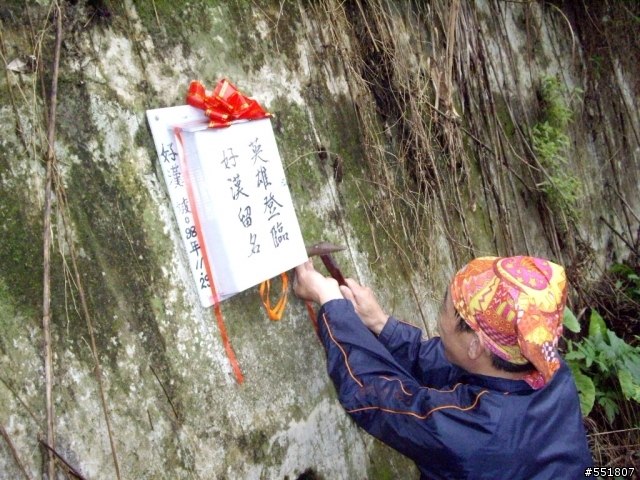 英雄登臨
好漢留名
好漢坡
098年11/29
#551807